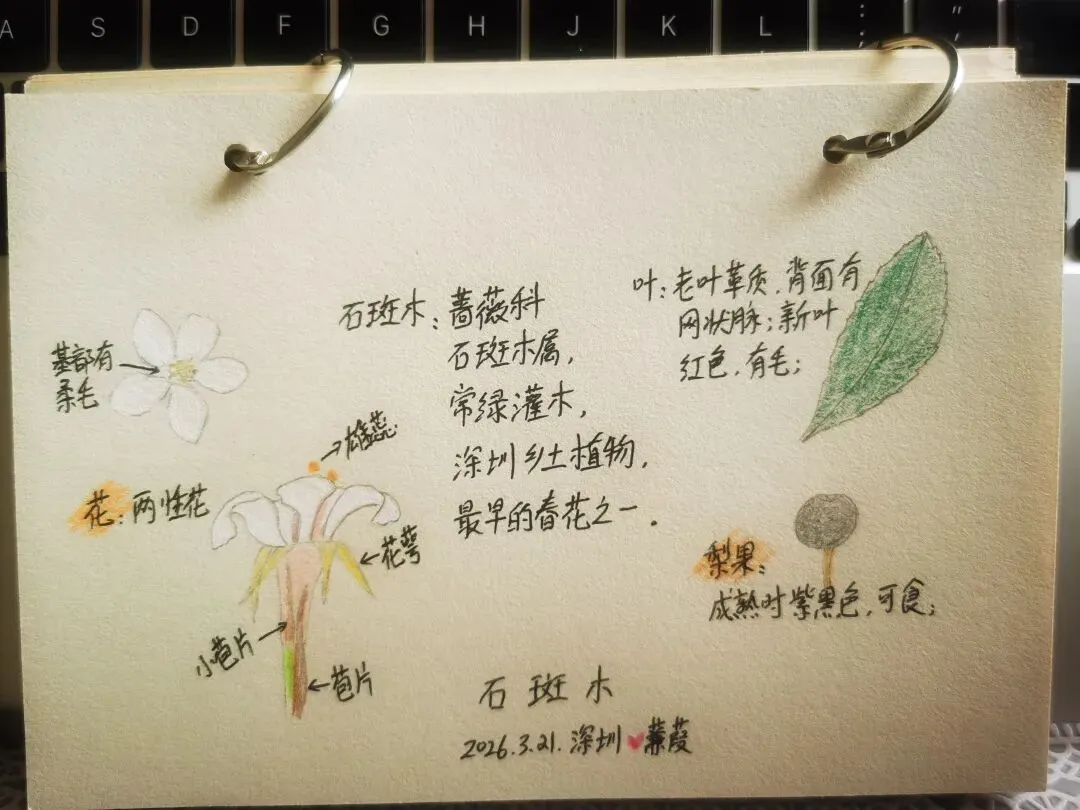 A S D F G H J K L : ; " '
石斑木：蔷薇科
石斑木属，
常绿灌木，
深圳乡土植物，
最早的春花之一。
叶：老叶革质，背面有
网状脉；新叶
红色，有毛；
基部有
柔毛
雄蕊
花：两性花
花萼
小苞片
苞片
梨果：
成熟时紫黑色，可食；
石斑木
2026.3.21.深圳♥蒹葭